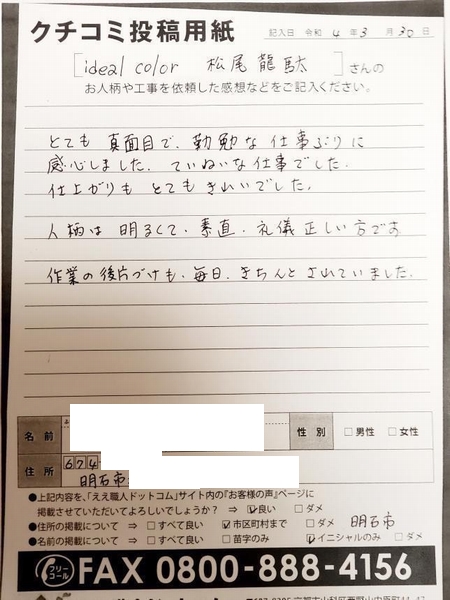 クチコミ投稿用紙
記入日 令和 4 年 3 月 30 日
[ideal color 松尾龍馱]さんの
お人柄や工事を依頼した感想などをご記入ください。
とても 真面目で、勤勉な 仕事ぶりに
感心しました. ていねいな仕事でした.
仕上がりも とても きれいでした.
人柄は 明るくて・素直・礼儀 正しい 方です
作業の後片づけも、毎日、きちんと されていました.
名前
性別
□男性 □女性
住所
674
明石市
●上記内容を、「ええ職人ドットコム」サイト内の『お客様の声』ページに
掲載させていただいてよろしいでしょうか? ⇒ ☑良い □ダメ
●住所の掲載について ⇒ □すべて良い ☑市区町村まで □ダメ 明石市
●名前の掲載について ⇒ □すべて良い □苗字のみ ☑イニシャルのみ □ダメ
フリーコール FAX 0800-888-4156